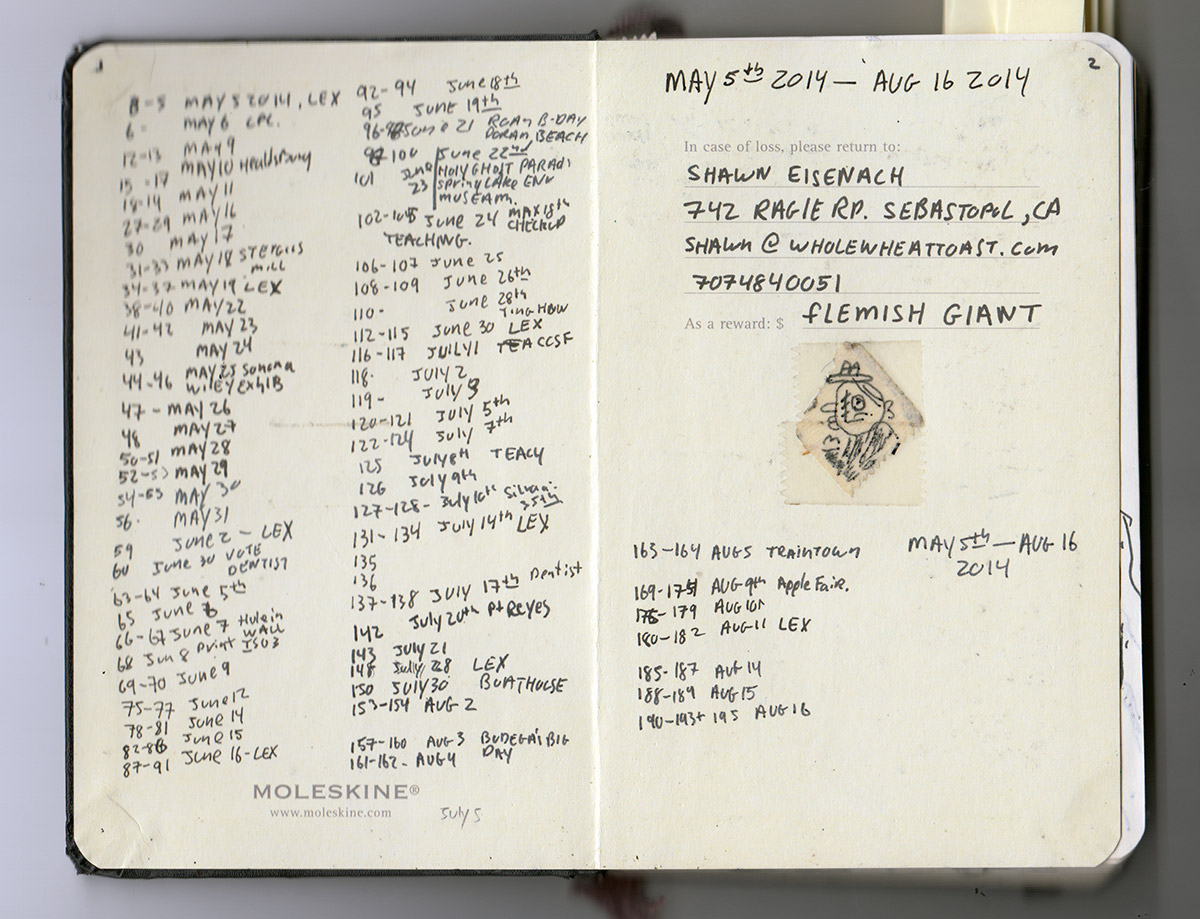 1
MAY 5 2014, LEX
6 - MAY 6 CPC.
12-13 MAY 9
15-17 MAY 10 Healdsburg
18-19 MAY 11
27-29 MAY 16
30 MAY 17
31-33 MAY 18 STERGIIS
MILL
34-37 MAY 19 LEX
38-40 MAY 22
41-42 MAY 23
43 MAY 24
44-46 MAY 25 Sonoma
WILEY EXHIB
47 - MAY 26
48 MAY 27
50-51 MAY 28
MAY 29
54-55 MAY 30
56. MAY 31
59 June 2 - LEX
60 June 30 VOTE
DENTIST
63-64 June 5th
65 June 6
66-67 June 7 Hole in
WALL
68 Jun 8 Print
69-70 June 9
75-77 June 12
78-81 June 14
June 15
87-91 June 16-LEX
92-94 June 18th
95 June 19th
June 21 ROAN B-DAY
DORAN BEACH
June 22nd
101 June 23 HOLY GHOST PARADE
SPRING LAKE ENV
MUSEUM.
102-105 June 24 MAX 18th
CHECKUP
TEACHING.
106-107 June 25
108-109 June 26th
110- June 28th
112-115 June 30 LEX
116-117 JULY 1 CCSF
118. JULY 2
119- JULY 3
120-121 July 5th
122-124 July 7th
125 July 8th TEACH
126 July 9th
127-128- July 10th
131-134 July 14th LEX
135
136
137-138 July 17th Dentist
142 July 20th Pt Reyes
143 July 21
148 July 28 LEX
150 JULY 30 BOATHOUSE
153-154 AUG 2
157-160 AUG 3 BODEGA'S BIG
DAY
161-162- AUG 4
MOLESKINE®
www.moleskine.com
July 5
2
MAY 5th 2014 — AUG 16 2014
In case of loss, please return to:
SHAWN EISENACH
742 RAGLE RD. SEBASTOPOL, CA
SHAWN @ WHOLEWHEATTOAST.com
7074840051
As a reward: $ FLEMISH GIANT
163-164 AUG 5 TRAINTOWN
MAY 5th — AUG 16
2014
AUG 9th Apple Fair.
AUG 10th
180-182 AUG 11 LEX
185-187 AUG 14
188-189 AUG 15
190-193+195 AUG 16